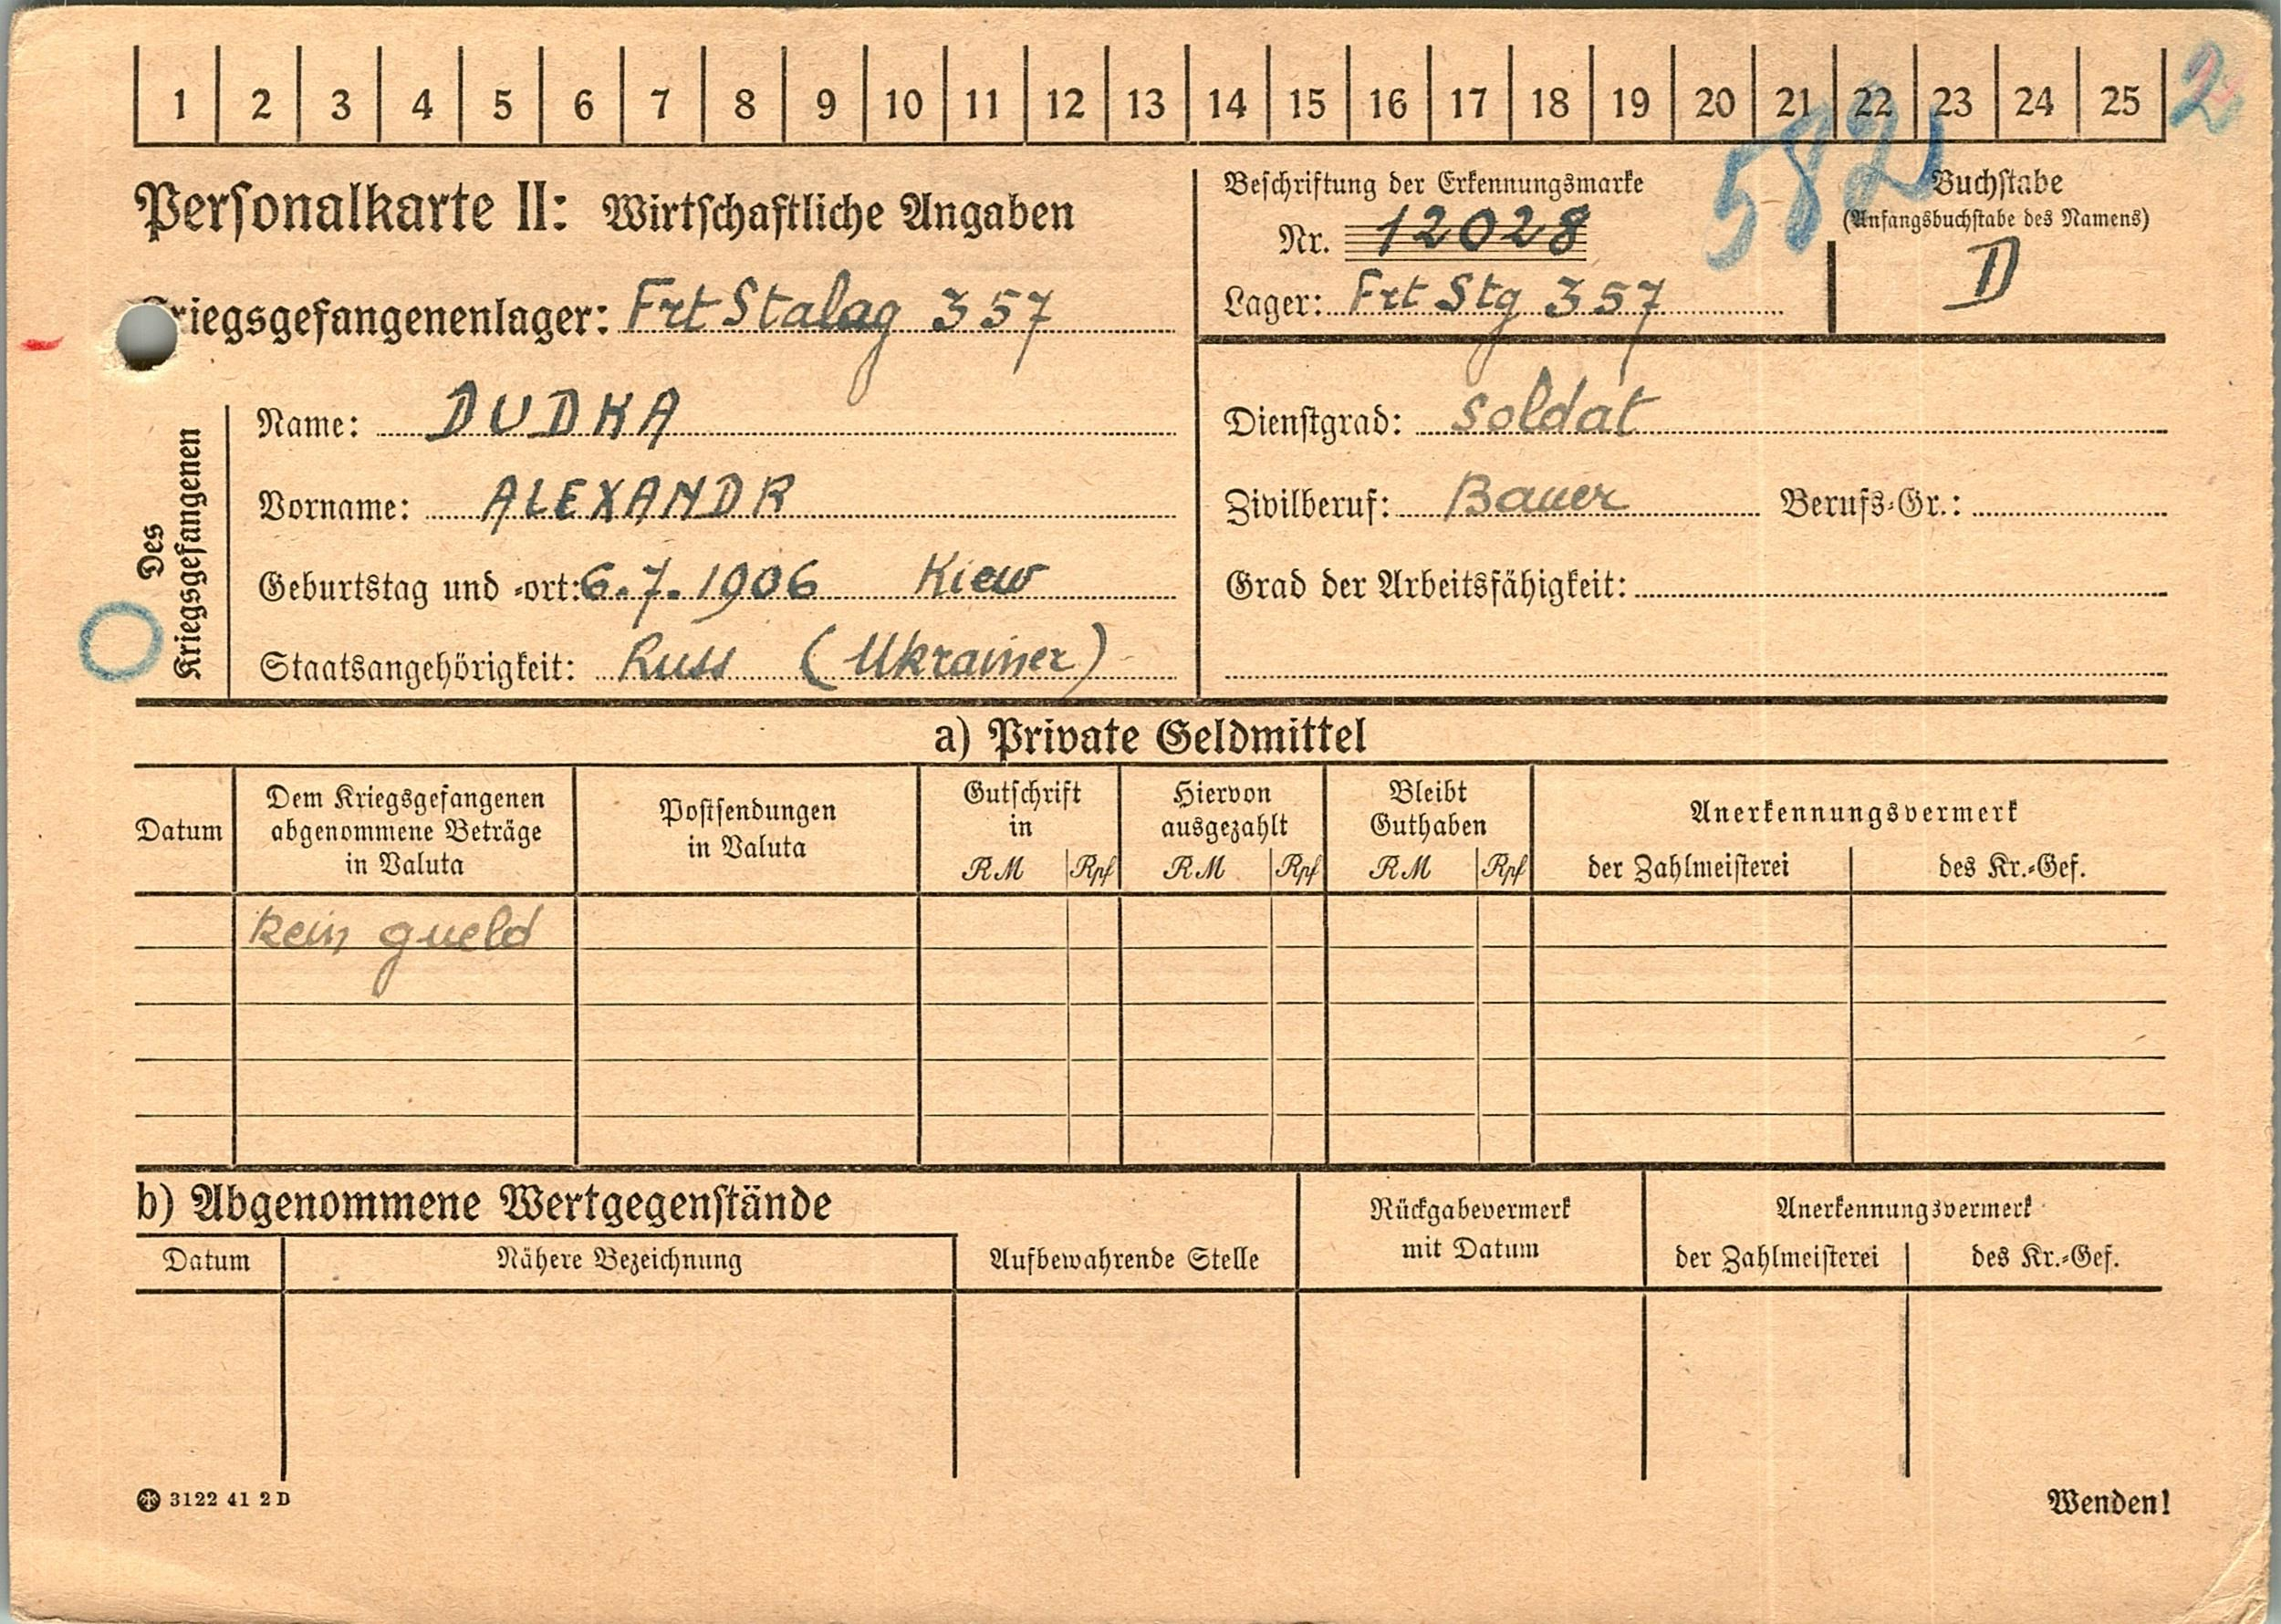 1 2 3 4 5 6 7 8 9 10 11 12 13 14 15 16 17 18 19 20 21 22 23 24 25 2
582
Personalkarte II: Wirtschaftliche Angaben
Kriegsgefangenenlager: Frt Stalag 357
Beschriftung der Erkennungsmarke
Nr. 12028
Lager: Frt Stg 357
Buchstabe
(Anfangsbuchstabe des Namens)
D
Des
Kriegsgefangenen
Name: DUDKA
Vorname: ALEXANDR
Geburtstag und -ort: 6.7.1906 Kiew
Staatsangehörigkeit: Russ (Ukrainer)
Dienstgrad: Soldat
Zivilberuf: Bauer Berufs-Gr.:
Grad der Arbeitsfähigkeit:
a) Private Geldmittel
Datum
Dem Kriegsgefangenen
abgenommene Beträge
in Valuta
Postsendungen
in Valuta
Gutschrift
in
RM Rpf
Hiervon
ausgezahlt
RM Rpf
Bleibt
Guthaben
RM Rpf
Anerkennungsvermerk
der Zahlmeisterei des Kr.-Gef.
kein gueld
b) Abgenommene Wertgegenstände
Datum Nähere Bezeichnung Aufbewahrende Stelle
Rückgabevermerk
mit Datum
Anerkennungsvermerk
der Zahlmeisterei des Kr.-Gef.
3122 41 2 D
Wenden!